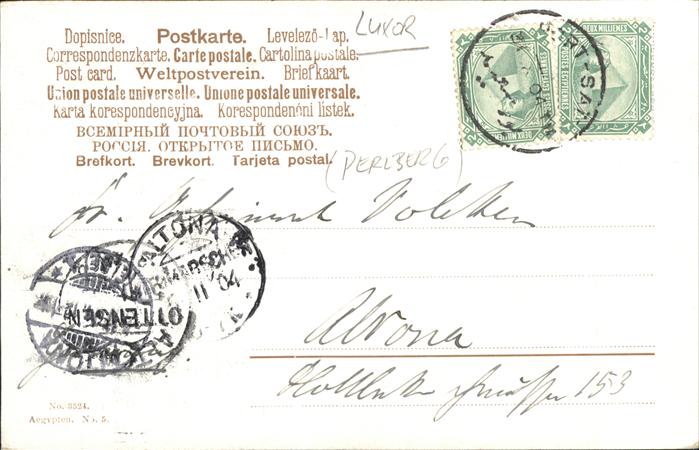 Dopisnice. Postkarte. Levelező-Lap.
Correspondenzkarte. Carte postale. Cartolina postale.
Post card. Weltpostverein. Briefkaart.
Union postale universelle. Unione postale universale.
Karta korespondencyjna. Korespondenční listek.
ВСЕМІРНЫЙ ПОЧТОВЫЙ СОЮЗЪ.
РОССІЯ. ОТКРЫТОЕ ПИСЬМО.
Brefkort. Brevkort. Tarjeta postal.
LUXOR
(PERLBERG)
DEUX MILLIEMES
POSTES EGYPTIENNES
DEUX MILLIEMES
PORT-SAID
ALTONA
OTTENSEN
Altona
153
No. 3524.
Aegypten. No. 5.